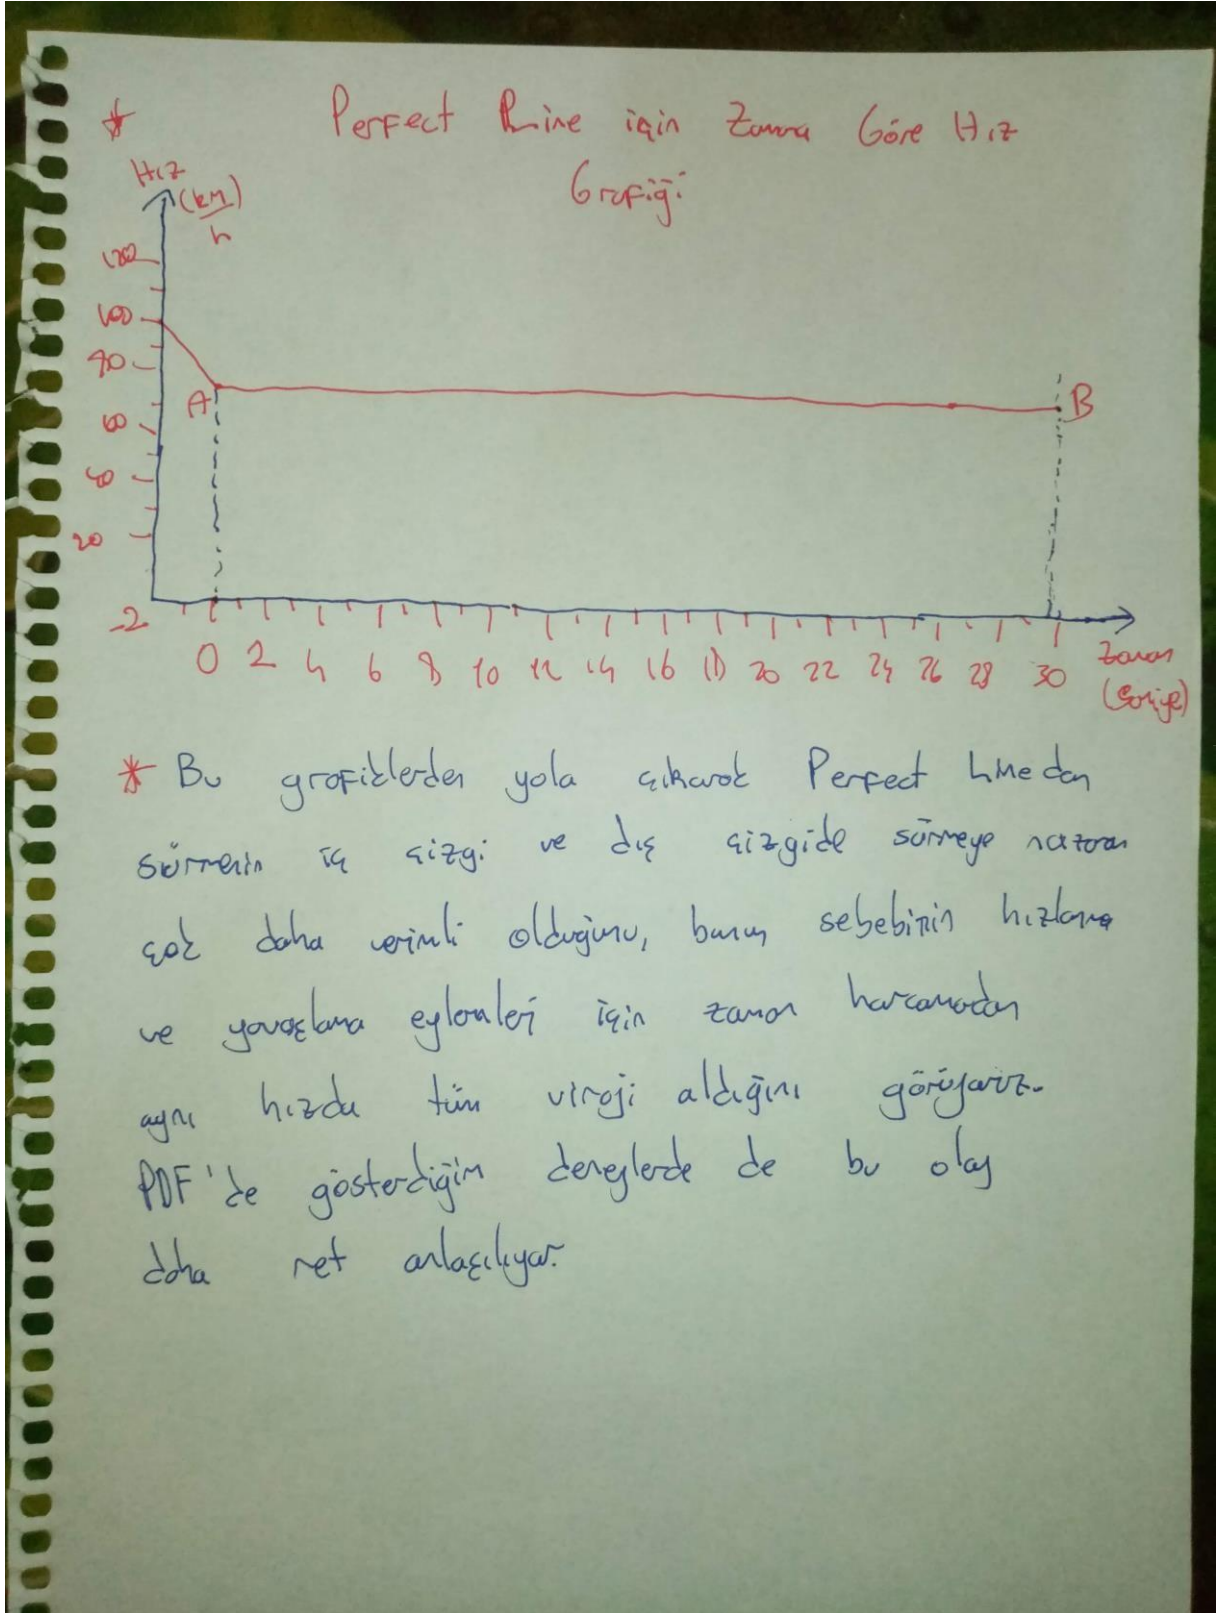 * Perfect Line için Zamana Göre Hız
Grafiği
Hız
(km)
h
120
100
80
60
40
20
A
B
-2
0 2 4 6 8 10 12 14 16 18 20 22 24 26 28 30
Zaman
(Saniye)
* Bu grafiklerden yola çıkarak Perfect Line dan
sürmenin iç çizgi ve dış çizgide sürmeye nazaran
çok daha verimli olduğunu, bunun sebebinin hızlanma
ve yavaşlama eylemleri için zaman harcamadan
aynı hızda tüm virajı aldığını görüyoruz.
PDF'de gösterdiğim deneylerde de bu olay
daha net anlaşılıyor.